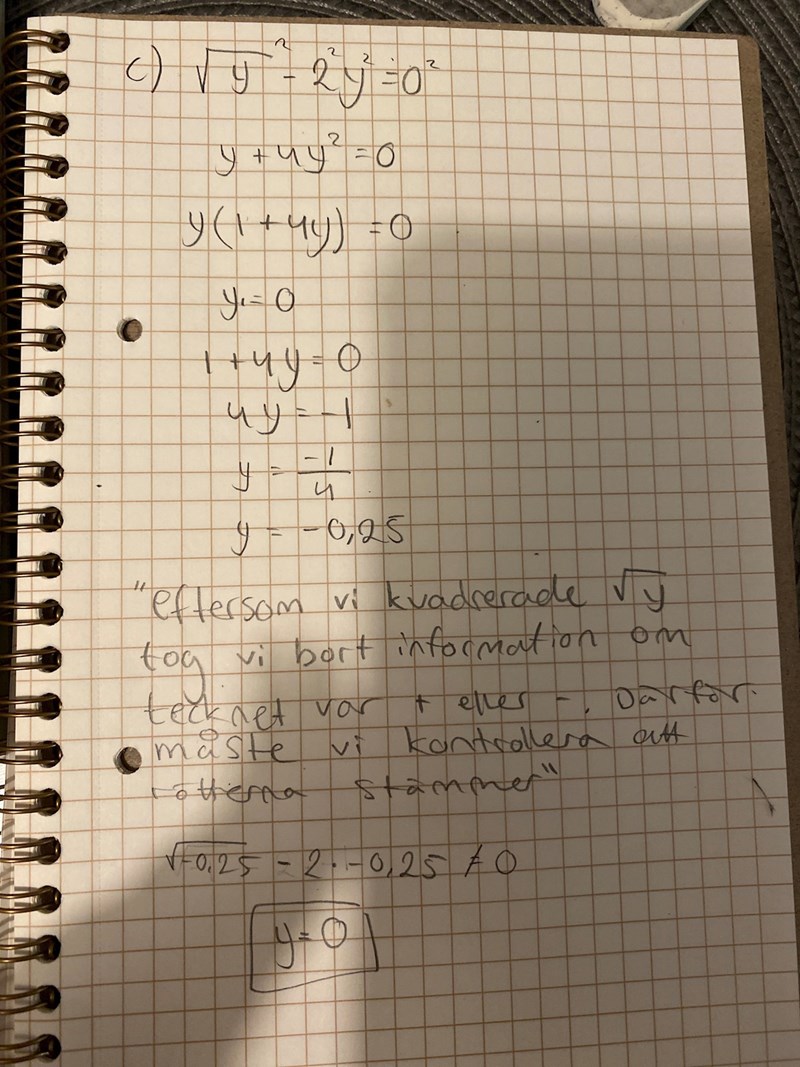 c) √y² - 2²y² = 0²
y + 4y² = 0
y(1 + 4y) = 0
y₁ = 0
1 + 4y = 0
4y = -1
y = -1/4
y = -0,25
"eftersom vi kvadrerade √y
tog vi bort information om
tecknet var + eller -. Därför
måste vi kontrollera att
rötterna stämmer"
√-0,25 - 2·-0,25 ≠ 0
y = 0